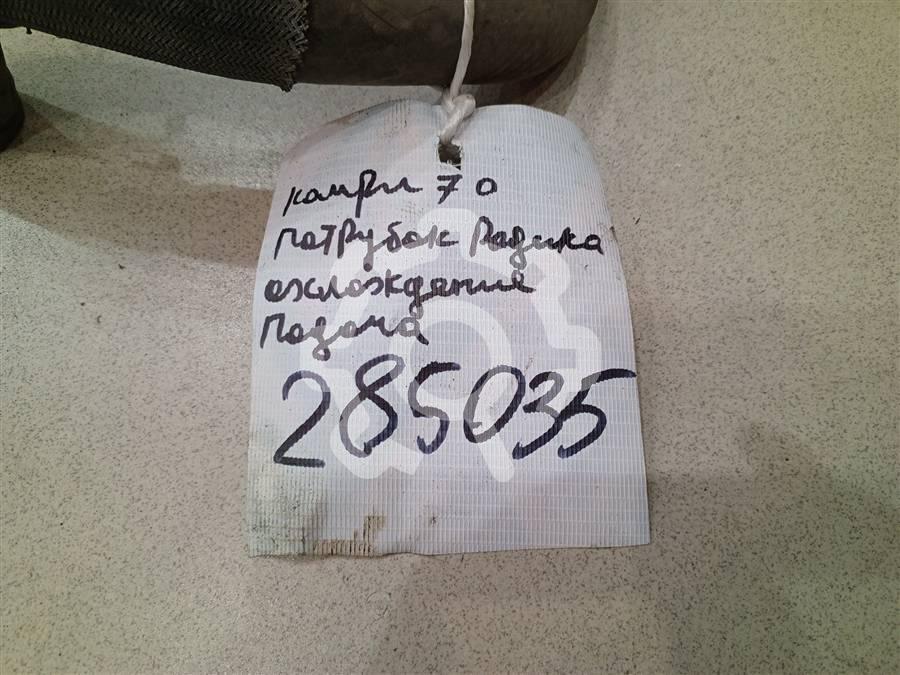 камри 70
патрубок радика
охлождение
подача
285035